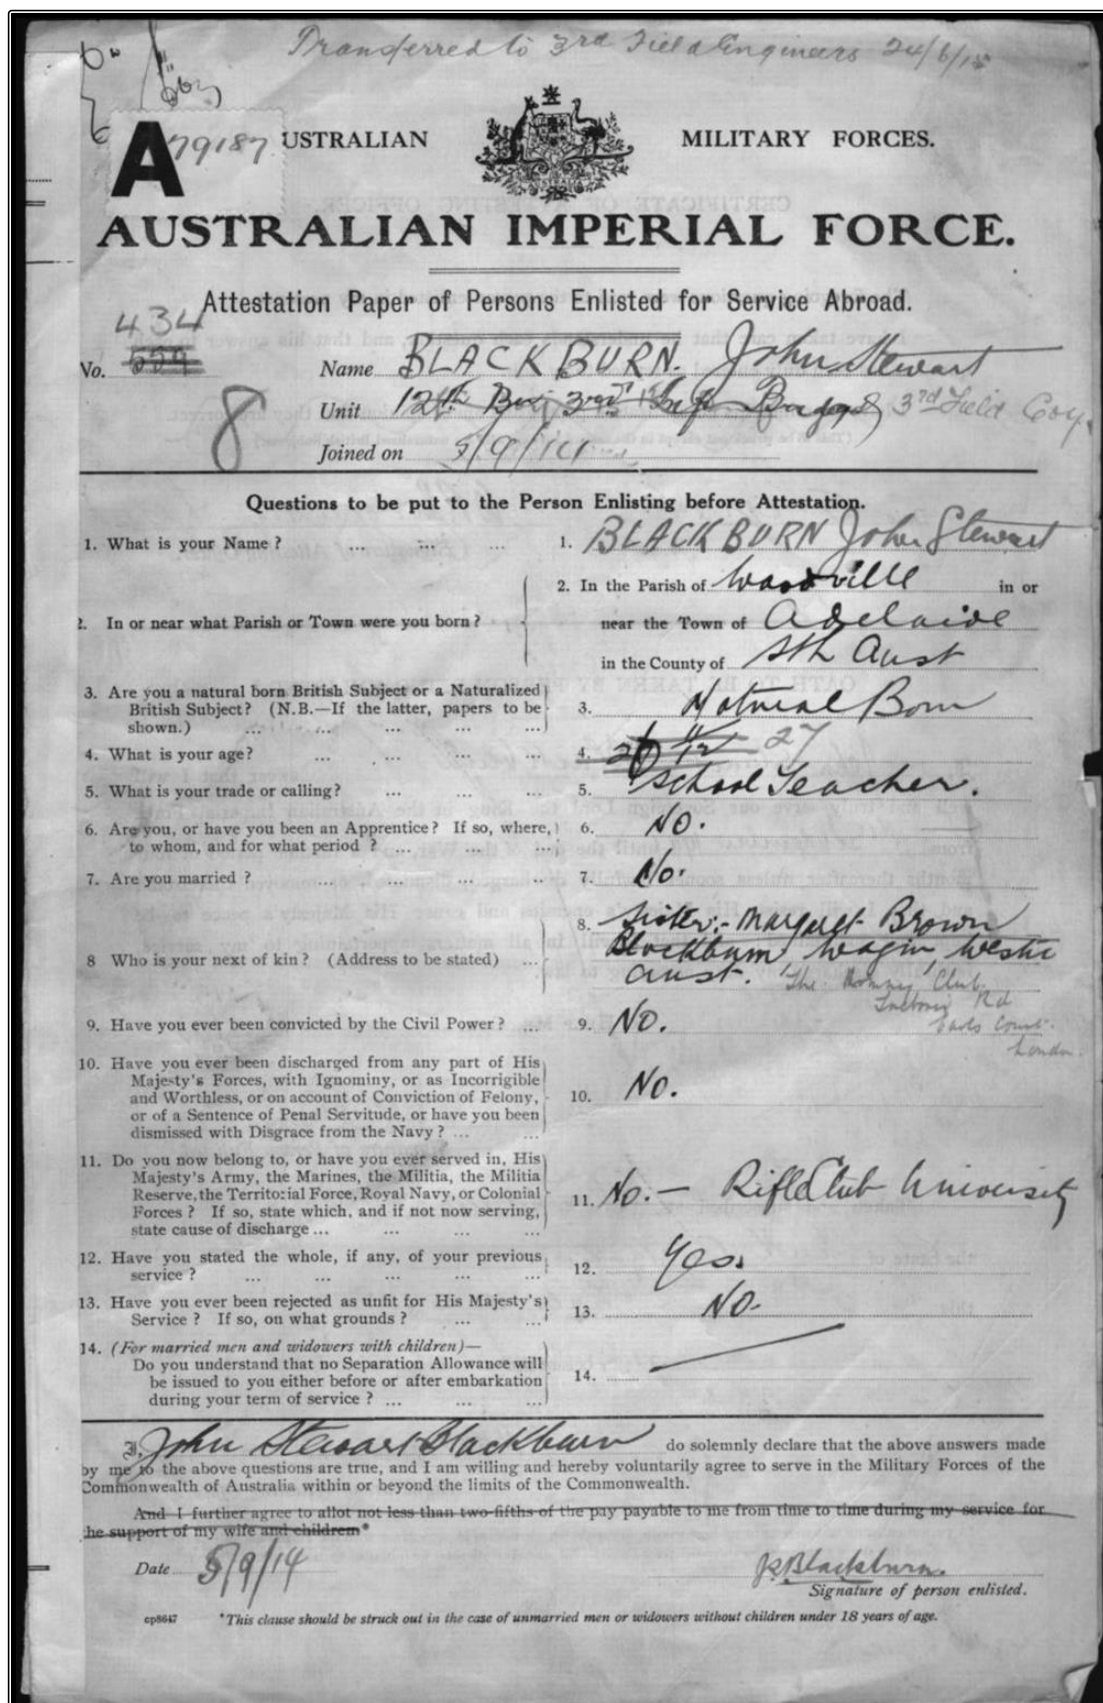 Transferred to 3rd Field Engineers 24/6/15
A79187 USTRALIAN MILITARY FORCES.
AUSTRALIAN IMPERIAL FORCE.
Attestation Paper of Persons Enlisted for Service Abroad.
434
No. 559 Name BLACKBURN. John Stewart
8 Unit 12th Bn 3rd Inf Brigade 3rd Field Coy.
Joined on 5/9/14
Questions to be put to the Person Enlisting before Attestation.
1. What is your Name? ... ... ... 1. BLACKBURN John Stewart
2. In the Parish of Woodville in or
2. In or near what Parish or Town were you born? near the Town of Adelaide
in the County of Sth Aust
3. Are you a natural born British Subject or a Naturalized
British Subject? (N.B.—If the latter, papers to be 3. Natural Born
shown.) ... ... ... ... ...
4. What is your age? ... ... ... ... 4. 26 11/12 27
5. What is your trade or calling? ... ... ... 5. School Teacher.
6. Are you, or have you been an Apprentice? If so, where, 6. NO.
to whom, and for what period ? ... ... ...
7. Are you married ? ... ... ... ... 7. No.
8. Sister:- Margaret Brown
8 Who is your next of kin? (Address to be stated) ... Blackburn, Wagin, Westn
Aust. The Club.
Rd
9. Have you ever been convicted by the Civil Power? ... 9. NO. Earls Court.
London.
10. Have you ever been discharged from any part of His
Majesty's Forces, with Ignominy, or as Incorrigible
and Worthless, or on account of Conviction of Felony, 10. NO.
or of a Sentence of Penal Servitude, or have you been
dismissed with Disgrace from the Navy? ... ...
11. Do you now belong to, or have you ever served in, His
Majesty's Army, the Marines, the Militia, the Militia
Reserve, the Territorial Force, Royal Navy, or Colonial 11. No. — Rifle Club University
Forces ? If so, state which, and if not now serving,
state cause of discharge ... ... ... ...
12. Have you stated the whole, if any, of your previous 12. Yes.
service ? ... ... ... ... ...
13. Have you ever been rejected as unfit for His Majesty's 13. NO.
Service ? If so, on what grounds ? ... ...
14. (For married men and widowers with children)—
Do you understand that no Separation Allowance will
be issued to you either before or after embarkation 14.
during your term of service ? ... ... ...
I, John Stewart Blackburn do solemnly declare that the above answers made
by me to the above questions are true, and I am willing and hereby voluntarily agree to serve in the Military Forces of the
Commonwealth of Australia within or beyond the limits of the Commonwealth.
And I further agree to allot not less than two-fifths of the pay payable to me from time to time during my service for
the support of my wife and children*
Date 5/9/14 JSBlackburn.
Signature of person enlisted.
cp8647 *This clause should be struck out in the case of unmarried men or widowers without children under 18 years of age.